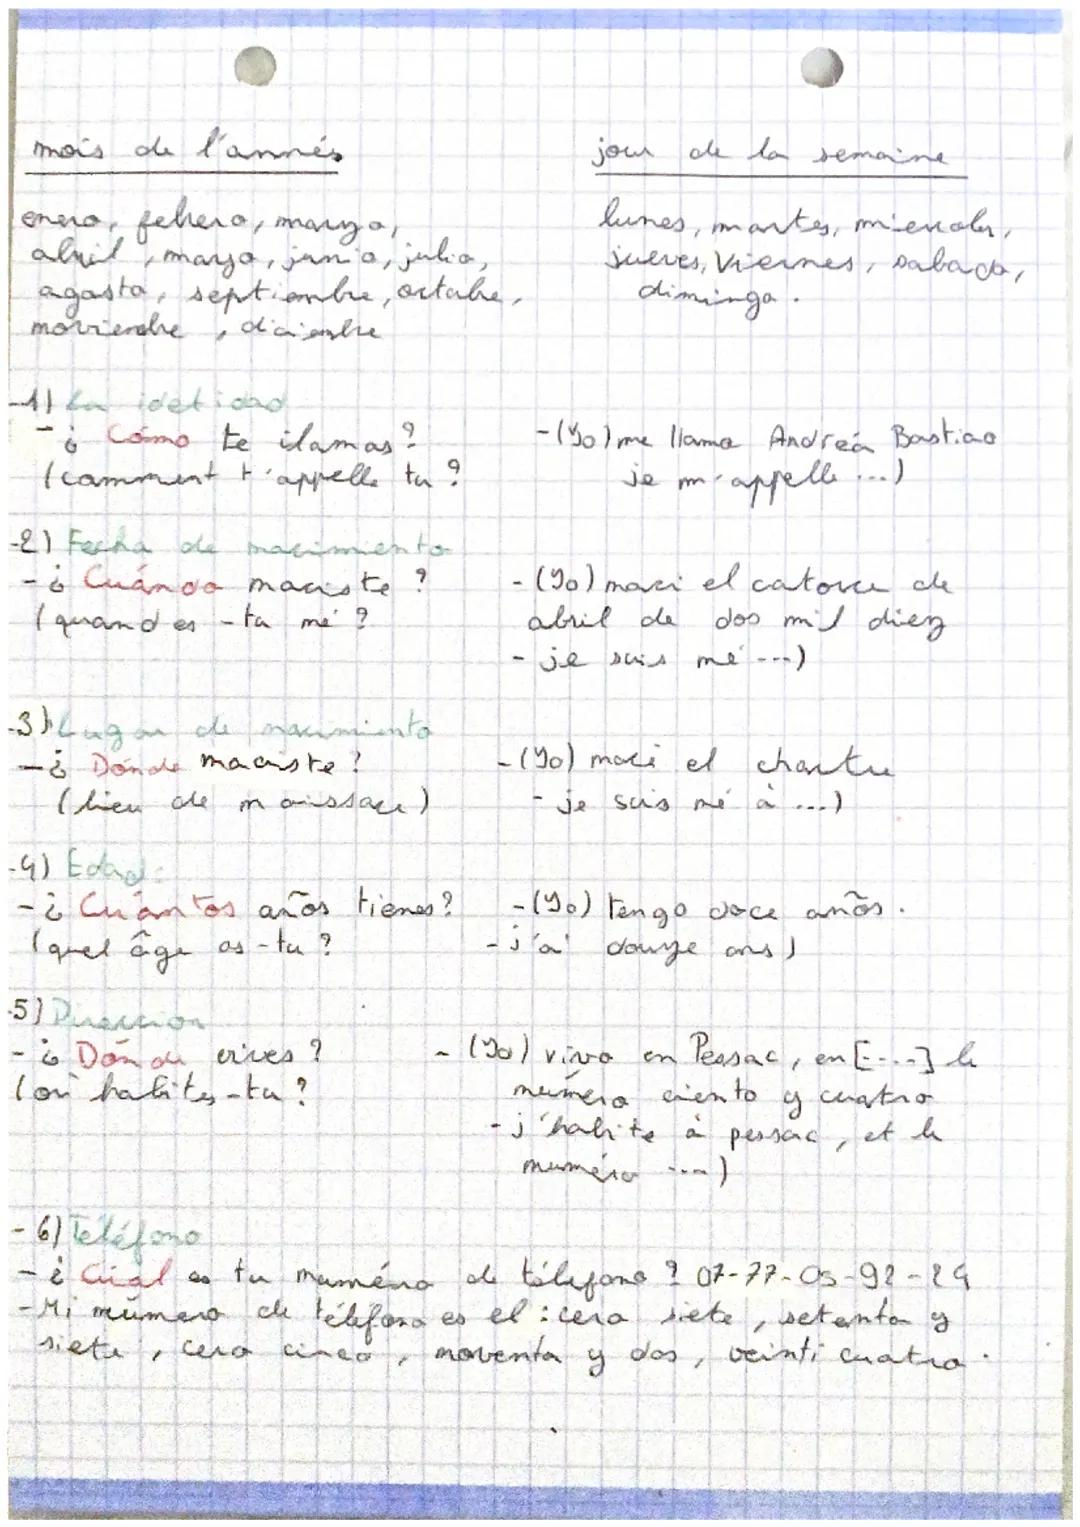 mois de l'annés
enero, febrero, marzo,
abril, mayo, junio, julio,
agosto, septiembre, octubre,
noviembre, diciembre
jour de la semaine
lunes, martes, miercoles,
jueves, Viernes, sabado,
diminga.
-1) La idetidad
- ¿ Cómo te llamas ?
(comment t'appelle tu ?
- (Yo) me llamo Andréa Bastiao
je m'appelle ...)
-2) Fecha de nacimiento
- ¿ Cuándo naciste ?
(quand es-tu né ?
- (Yo) naci el catorce de
abril de dos mil diez
- je suis né ...)
-3) Lugar de nacimiento
- ¿ Dónde naciste ?
(lieu de naissace)
- (Yo) naci el chartre
- je suis né à ...)
-4) Edad:
- ¿ Cuántos años tienes ?
(quel âge as-tu ?
- (Yo) tengo doce años.
- j'ai douze ans)
-5) Direccion
- ¿ Dónde vives ?
(où habites-tu ?
- (Yo) vivo en Pessac, en [....] le
número ciento y cuatro
- j'habite à pessac, et le
numéro ....)
- 6) Teléfono
- ¿ Cúal es tu numéro de téléfono ? 07-77-05-92-24
- Mi número de téléfono es el : cero siete, setenta y
siete, cero cinco, noventa y dos, veinti cuatro.